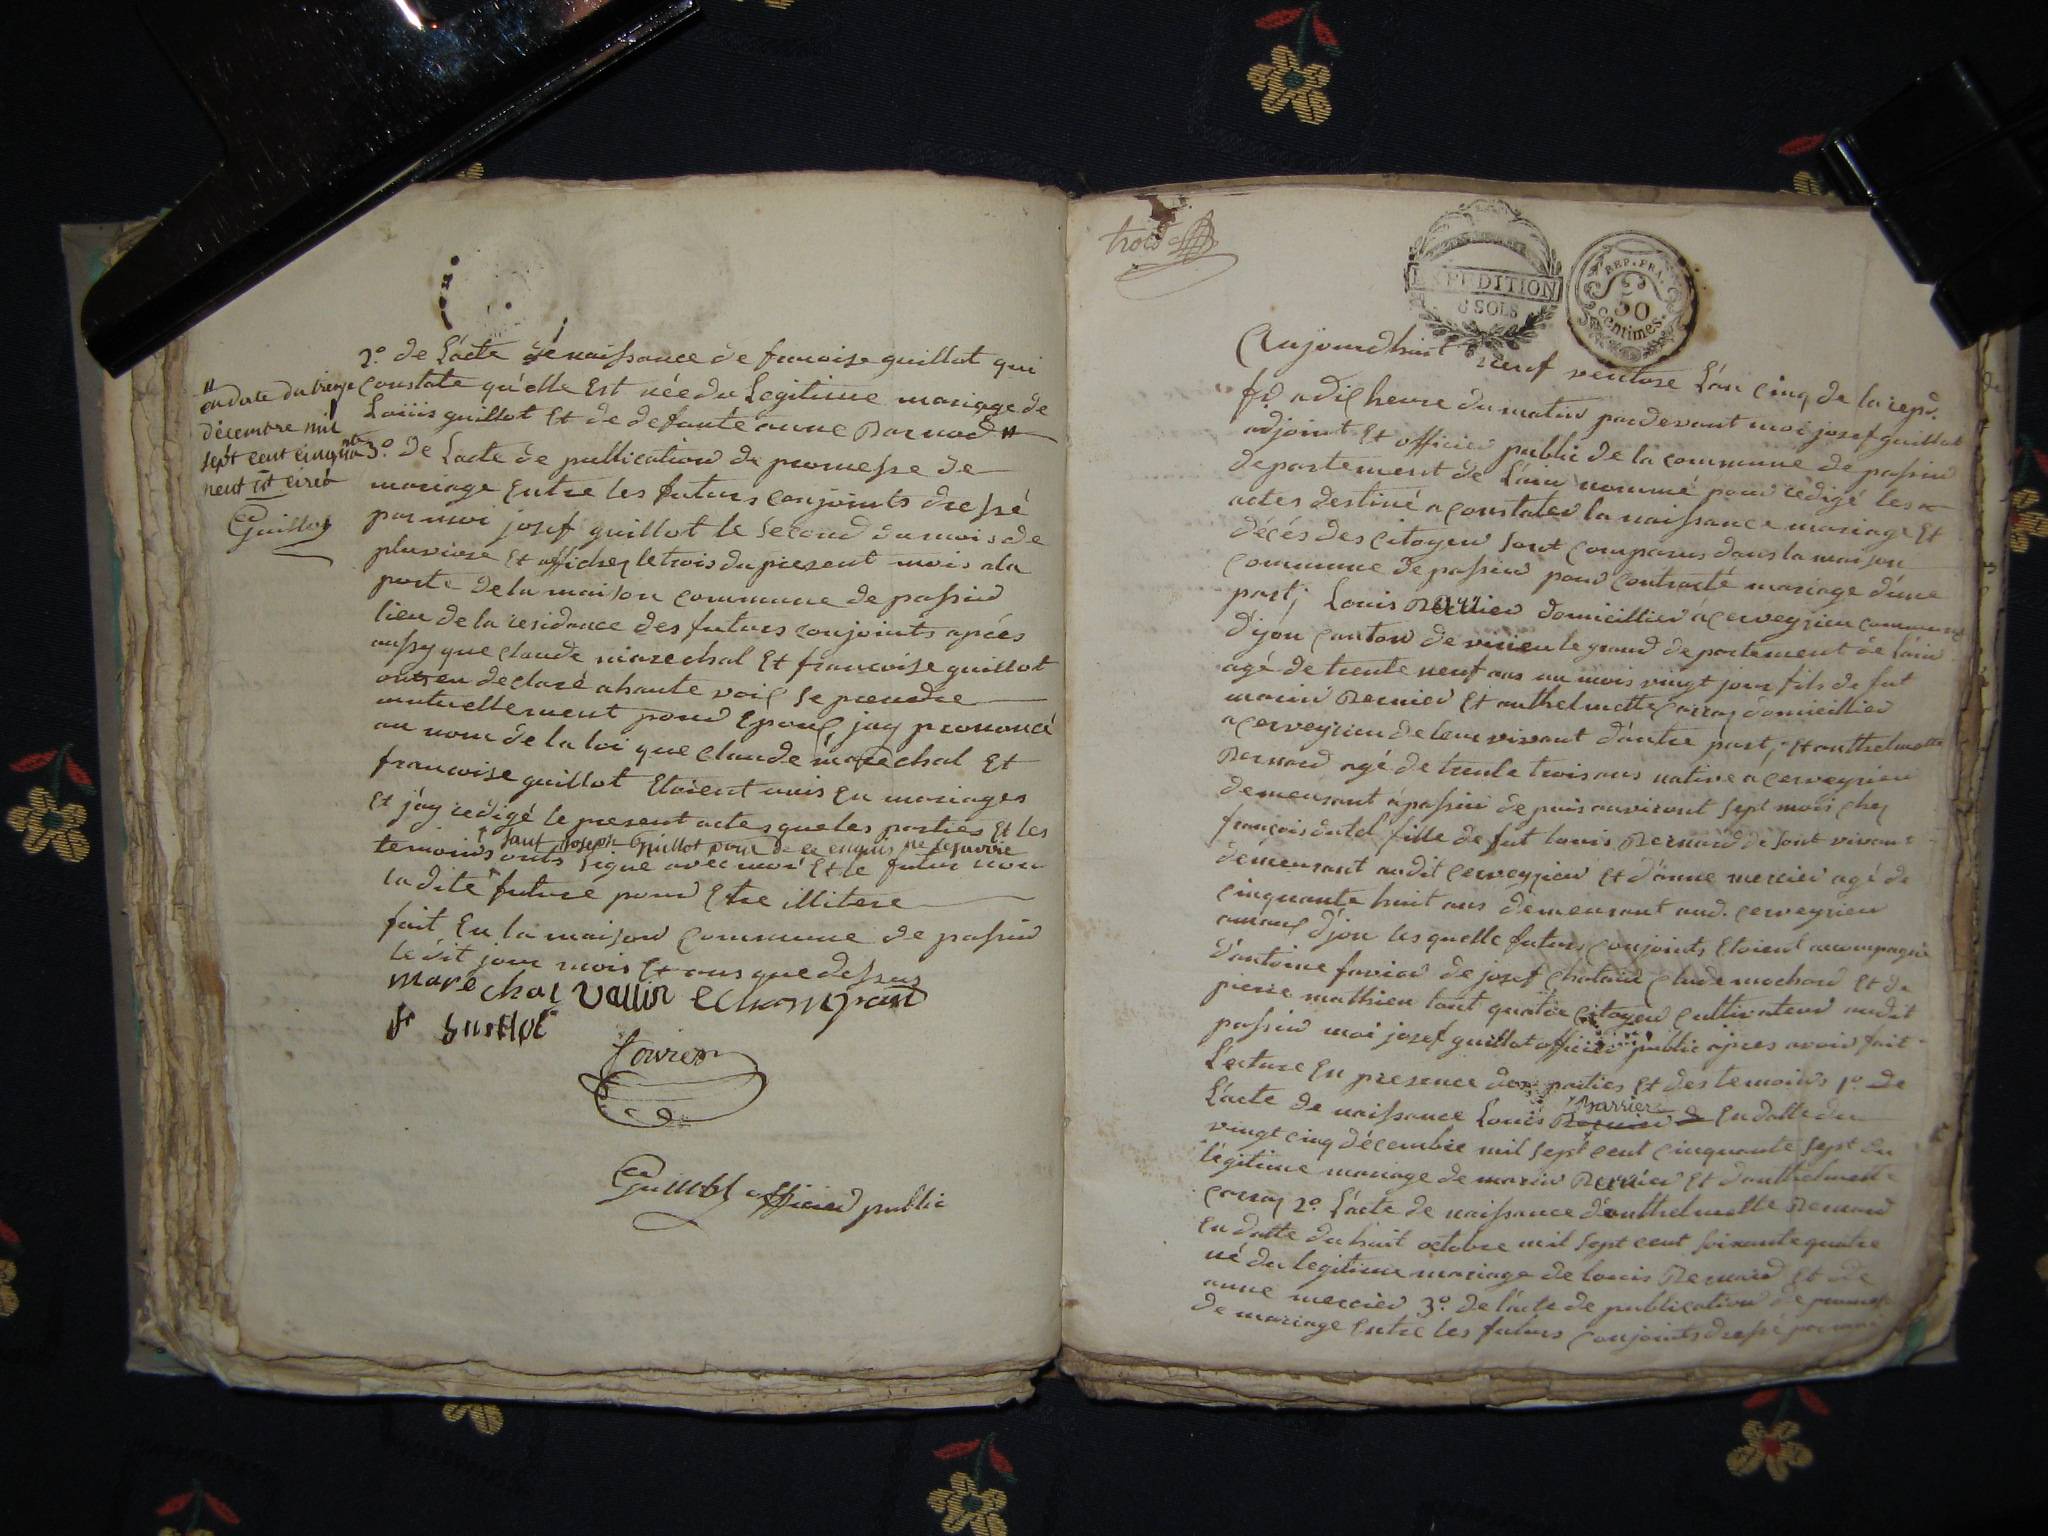 2.º de L'acte de naissance de francoise guillot qui
constate qu'elle Est née du Legitime mariage de
Louiis guillot Et de defunte anne Barnod #
# en date du treize
décembre mil
sept cent cinquante
neuf
Guillot
3.º de Lacte de publication de promesse de
mariage Entre les futurs conjoints dressé
par moi josef guillot le second du mois de
pluviose Et afficher le trois du present mois a la
porte de la maison commune de passin
lieu de la residance des futurs conjoints apres
aussy que claude marechal Et francoise guillot
onts en declaré a haute voix se prendre
mutuellement pour Epoux, jay prononcé
au nom de la loi que claude marechal Et
francoise guillot Etoient unis En mariages
Et j'ay redigé le present actes que les parties Et les
sauf joseph Guillot pour de ce enquis ne le savoir
temoins onts signe avec moi Et le futur non
la dite future pour Etre illitere
fait En la maison commune de passin
le dit jour mois Et ans que dessus
marechal vallin
guillot
Guillot officier public
trois
EXPEDITION
6 SOLS
REP. FRA.
50
centimes.
Aujourdhuit neuf ventose L'an cinq de la repu.
fr. a dix heure du matin pardevant moi josef guillot
adjoint Et officier public de la commune de passin
departement de L'ain nommé pour redigé les
actes destiné a constater la naissance mariage Et
décés des citoyen sont comparus dans la maison
commune de passin pour contracté mariage d'une
part, Louis domicillier a cerveyrieu commune
d'jon canton de virieu le grand departement de l'ain
agé de trente neuf ans un mois vingt jour fils de fut
marin Et anthelmette domicillier
a cerveyrieu de leur vivant d'autre part, Et anthelmette
Bernard agé de trente trois ans native a cerveyrieu
demeurant a passin depuis anviront sept mois chez
françois dutel fille de fut louis Bernard de sont vivant
demeurant audit cerveyrieu Et d'anne mercier agé de
cinquante huit ans demeurant aud. cerveyrieu
d'jon les quelle futurs conjoints Etoient accompagné
d'antoine favier de josef chatain clude mochon Et de
pierre mathieu tout quatre citoyen cultivateur audit
passin moi josef guillot officier public apres avoir fait
Lecture En presence des parties Et des temoins 1.º de
L'acte de naissance Louis Barriere En datte du
vingt cinq décembre mil sept cent cinquante sept du
légitime mariage de marin Et d'anthelmette
2.º L'acte de naissance d'anthelmette Bernard
En datte du huit octobre mil sept cent soixante quatre
né du legitime mariage de louis Bernard Et de
anne mercier 3.º de l'acte de publication de promesse
de mariage Entre les futurs conjoints dressé par moi